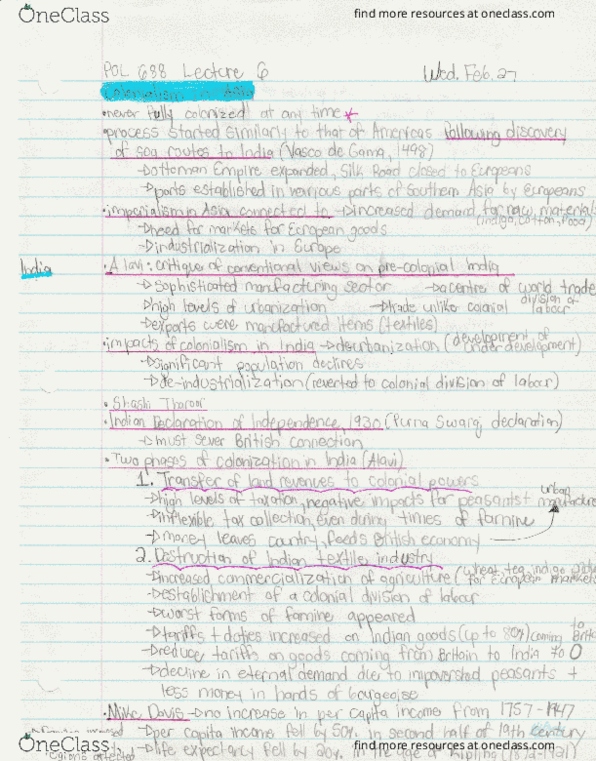 OneClass
find more resources at oneclass.com
POL 688 Lecture 6 Wed. Feb. 27
Colonialism in Asia
•never fully colonized at any time *
•process started similarly to that of Americas following discovery
of sea routes to India (Vasco de Gama, 1498)
→ottoman Empire expanded, Silk Road closed to Europeans
→ports established in various parts of Southern Asia by Europeans
•imperialism in Asia connected to →increased demand for raw materials
(indigo, cotton, food)
→need for markets for European goods
→industrialization in Europe
India
•Alavi: critique of conventional views on pre-colonial India
→sophisticated manufacturing sector →a centre of world trade
→high levels of urbanization →trade unlike colonial division of labour
→exports were manufactured items (textiles)
•impacts of colonialism in India →deurbanization (development of underdevelopment)
→significant population declines
→de-industrialization (reverted to colonial division of labour)
• Shashi Tharoor
•Indian Declaration of Independence, 1930 (Purna Swaraj declaration)
→must sever British connection
•Two phases of colonization in India (Alavi)
1. Transfer of land revenues to colonial powers
→high levels of taxation, negative impacts for peasants + urban
→inflexible tax collection, even during times of famine
→money leaves country, feeds British economy
2. Destruction of Indian textiles industry
→increased commercialization of agriculture (wheat, tea, indigo for European markets
→establishment of a colonial division of labour
→worst forms of famine appeared
→tariffs + duties increased on Indian goods (up to 80%) coming to
→reduce tariffs on goods coming from Britain to India to 0
→decline in external demand due to impoverished peasants +
less money in hands of bourgeoise
•Mike Davis →no increase in per capita income from 1757-1947
→per capita income fell by 50% in second half of 19th century
→life expectancy fell by 20% in the age of Kipling (1872-1921)
OneClass
find more resources at oneclass.com